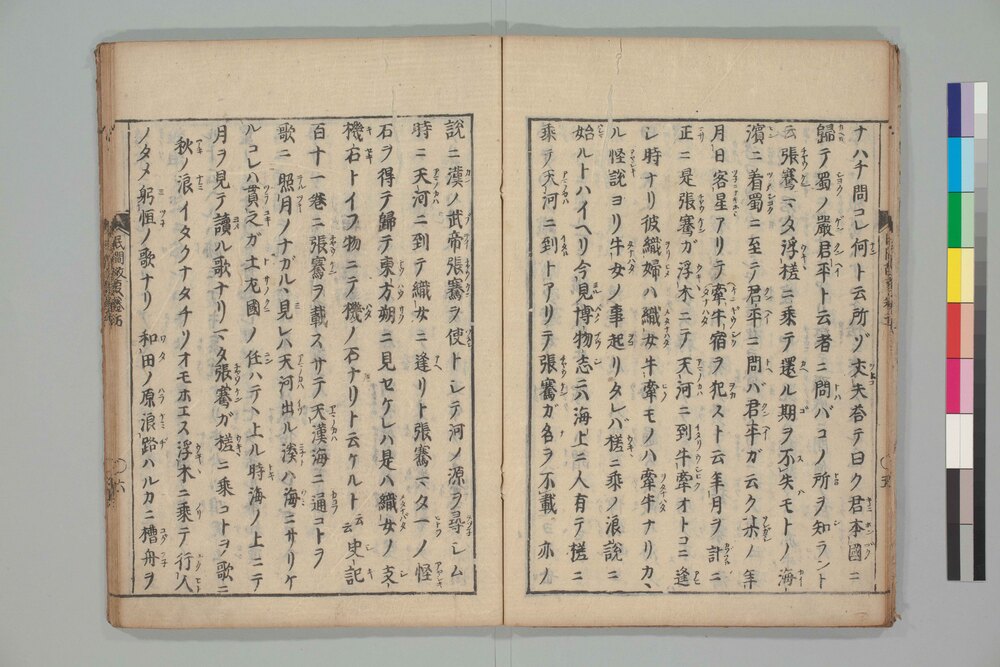 ナハチ問コレ何ト云所ゾ丈夫荅テ曰ク君本國ニ
歸テ蜀ノ嚴君平ト云者ニ問バコノ所ヲ知ラント
云張騫マタ浮槎ニ乘テ還ル期ヲ不失モトノ海
濱ニ着蜀ニ至テ君平ニ問バ君平ガ云ク其ノ年
月日客星アリテ牽牛宿ヲ犯スト云年月ヲ計ニ
正ニ是張騫ガ浮木ニテ天河ニ到牛牽オトコニ逢
シ時ナリ彼織婦ハ織女牛牽モノハ牽牛ナリカヽ
ル怪説ヨリ牛女ノ事起リタレバ槎ニ乘ノ浪説ニ
始ルトハイヘリ今見博物志云海上ニ人有テ槎ニ
乘テ天河ニ到トアリテ張騫ガ名ヲ不載亦ノ
説ニ漢ノ武帝張騫ヲ使トシテ河ノ源ヲ尋シム
時ニ天河ニ到テ織女ニ逢リト張騫マター ノ怪
石ヲ得テ歸テ東方朔ニ見セケレハ是ハ織女ノ支
機石トイフ物ニテノ機ノ石ナリト云ケルト云史記
百十一巻ニ張騫ヲ載スサテ天漢海ニ通コトヲ
歌ニ照月ノナガルヽ見レハ天河出ル湊ハ海ニサリケ
ルコレハ貫之ガ土左國ノ任ハテヽ上ル時海ノ上ニテ
月ヲ見テ讀ル歌ナリマタ張騫ガ槎ニ乘コトヲノ歌ニ
秋ノ浪イタクナタチソオモホエス浮木ニ乘テ行人
ノタメ躬恒ノ歌ナリ 和田ノ原浪路ハルカニ槽舟ヲ
五
六